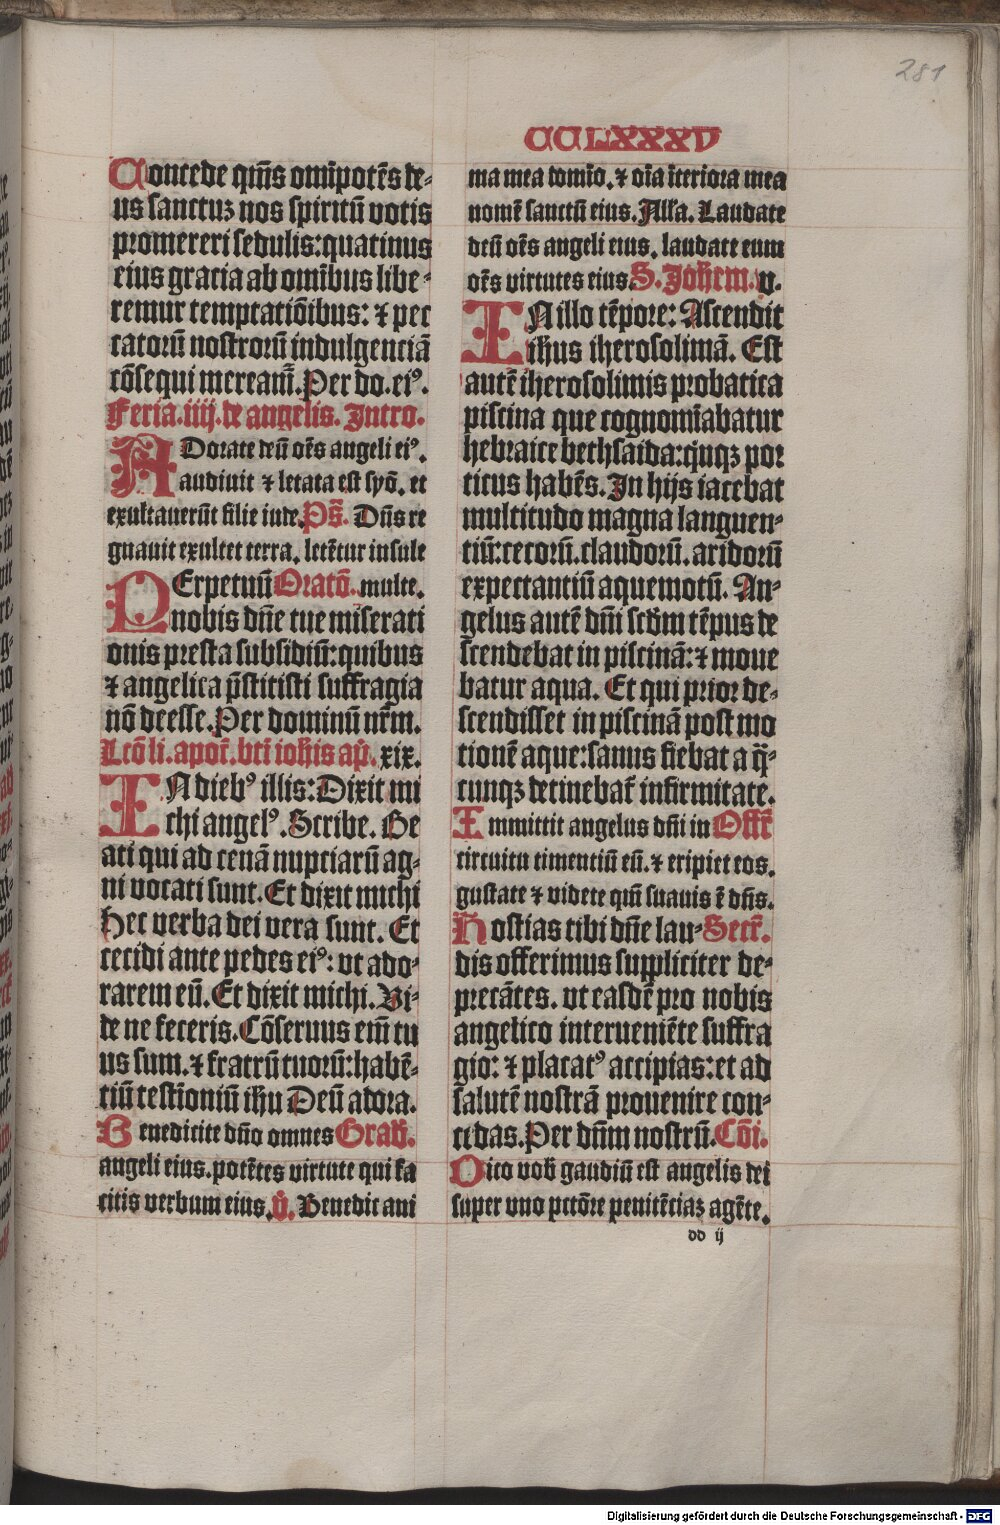 281
CCLXXXV
Concede q̄m̄s om̄ipotēs de⸗
us sanctuz nos spiritū votis
promereri sedulis: quatinus
eius gracia ab om̄ibus libe⸗
remur temptatiōibus: ⁊ pec
catorū nostrorū indulgenciā
cōsequi meream̄. Per do. eiꝰ.
Feria. iiij. de angelis. Intro.
ADorate deū oēs angeli eiꝰ.
audiuit ⁊ letata est syō. et
exultauerūt filie iude. Ps̄. Dn̄s re
gnauit exultet terra. letētur insule
PErpetuū Oratō. multe.
nobis dn̄e tue miserati
onis presta subsidiū: quibus
⁊ angelica p̄stitisti suffragia
nō deesse. Per dominū nr̄m.
Lcō li. apoc̄. bt̄i ioh̄is ap̄. xix.
IN diebꝰ illis: Dixit mi
chi angelꝰ. Scribe. Be
ati qui ad cenā nupciarū ag⸗
ni vocati sunt. Et dixit michi
Hec verba dei vera sunt. Et
cecidi ante pedes eiꝰ: vt ado⸗
rarem eū. Et dixit michi. Vi⸗
de ne feceris. Cōseruus em̄ tu
us sum. ⁊ fratrū tuorū: habē⸗
tiū testīoniū ih̄u Deū adora.
Benedicite dn̄o omnes Grad̄.
angeli eius. potētes virtute qui fa
citis verbum eius. v̄. Benedic ani
ma mea domīo. ⁊ oīa īteriora mea
nomē sanctū eius. All̄a. Laudate
deū oēs angeli eius. laudate eum
oēs virtutes eius. S. Joh̄em. v.
IN illo tēpore: Ascendit
ih̄us iherosolimā. Est
autē iherosolimis probatica
piscina que cognomīabatur
hebraice bethsaida: qīqꝫ por
ticus habēs. In hijs iacebat
multitudo magna languen⸗
tiū: cecorū. claudorū. aridorū
expectantiū aque motū. An⸗
gelus autē dn̄i scd̄m tēpus de
scendebat in piscinā: ⁊ moue
batur aqua. Et qui prior de⸗
scendisset in piscinā post mo
tionē aque: sanus fiebat a q̄⸗
cunqꝫ detinebat̄ infirmitate.
Immittit angelus dn̄i in Off̄
circuitu timentiū eū. ⁊ eripiet eos.
gustate ⁊ videte qm̄ suauis ē dn̄s.
Hostias tibi dn̄e lau⸗ Secr̄.
dis offerimus suppliciter de⸗
precātes. vt easdē pro nobis
angelico interueniēte suffra
gio: ⁊ placatꝰ accipias: et ad
salutē nostrā prouenire con⸗
cedas. Per dn̄m nostrū. Cōi.
Dico vob̄ gaudiū est angelis dei
super vno pctōre penitēciaz agēte.
dd ij
Digitalisierung gefördert durch die Deutsche Forschungsgemeinschaft - DFG